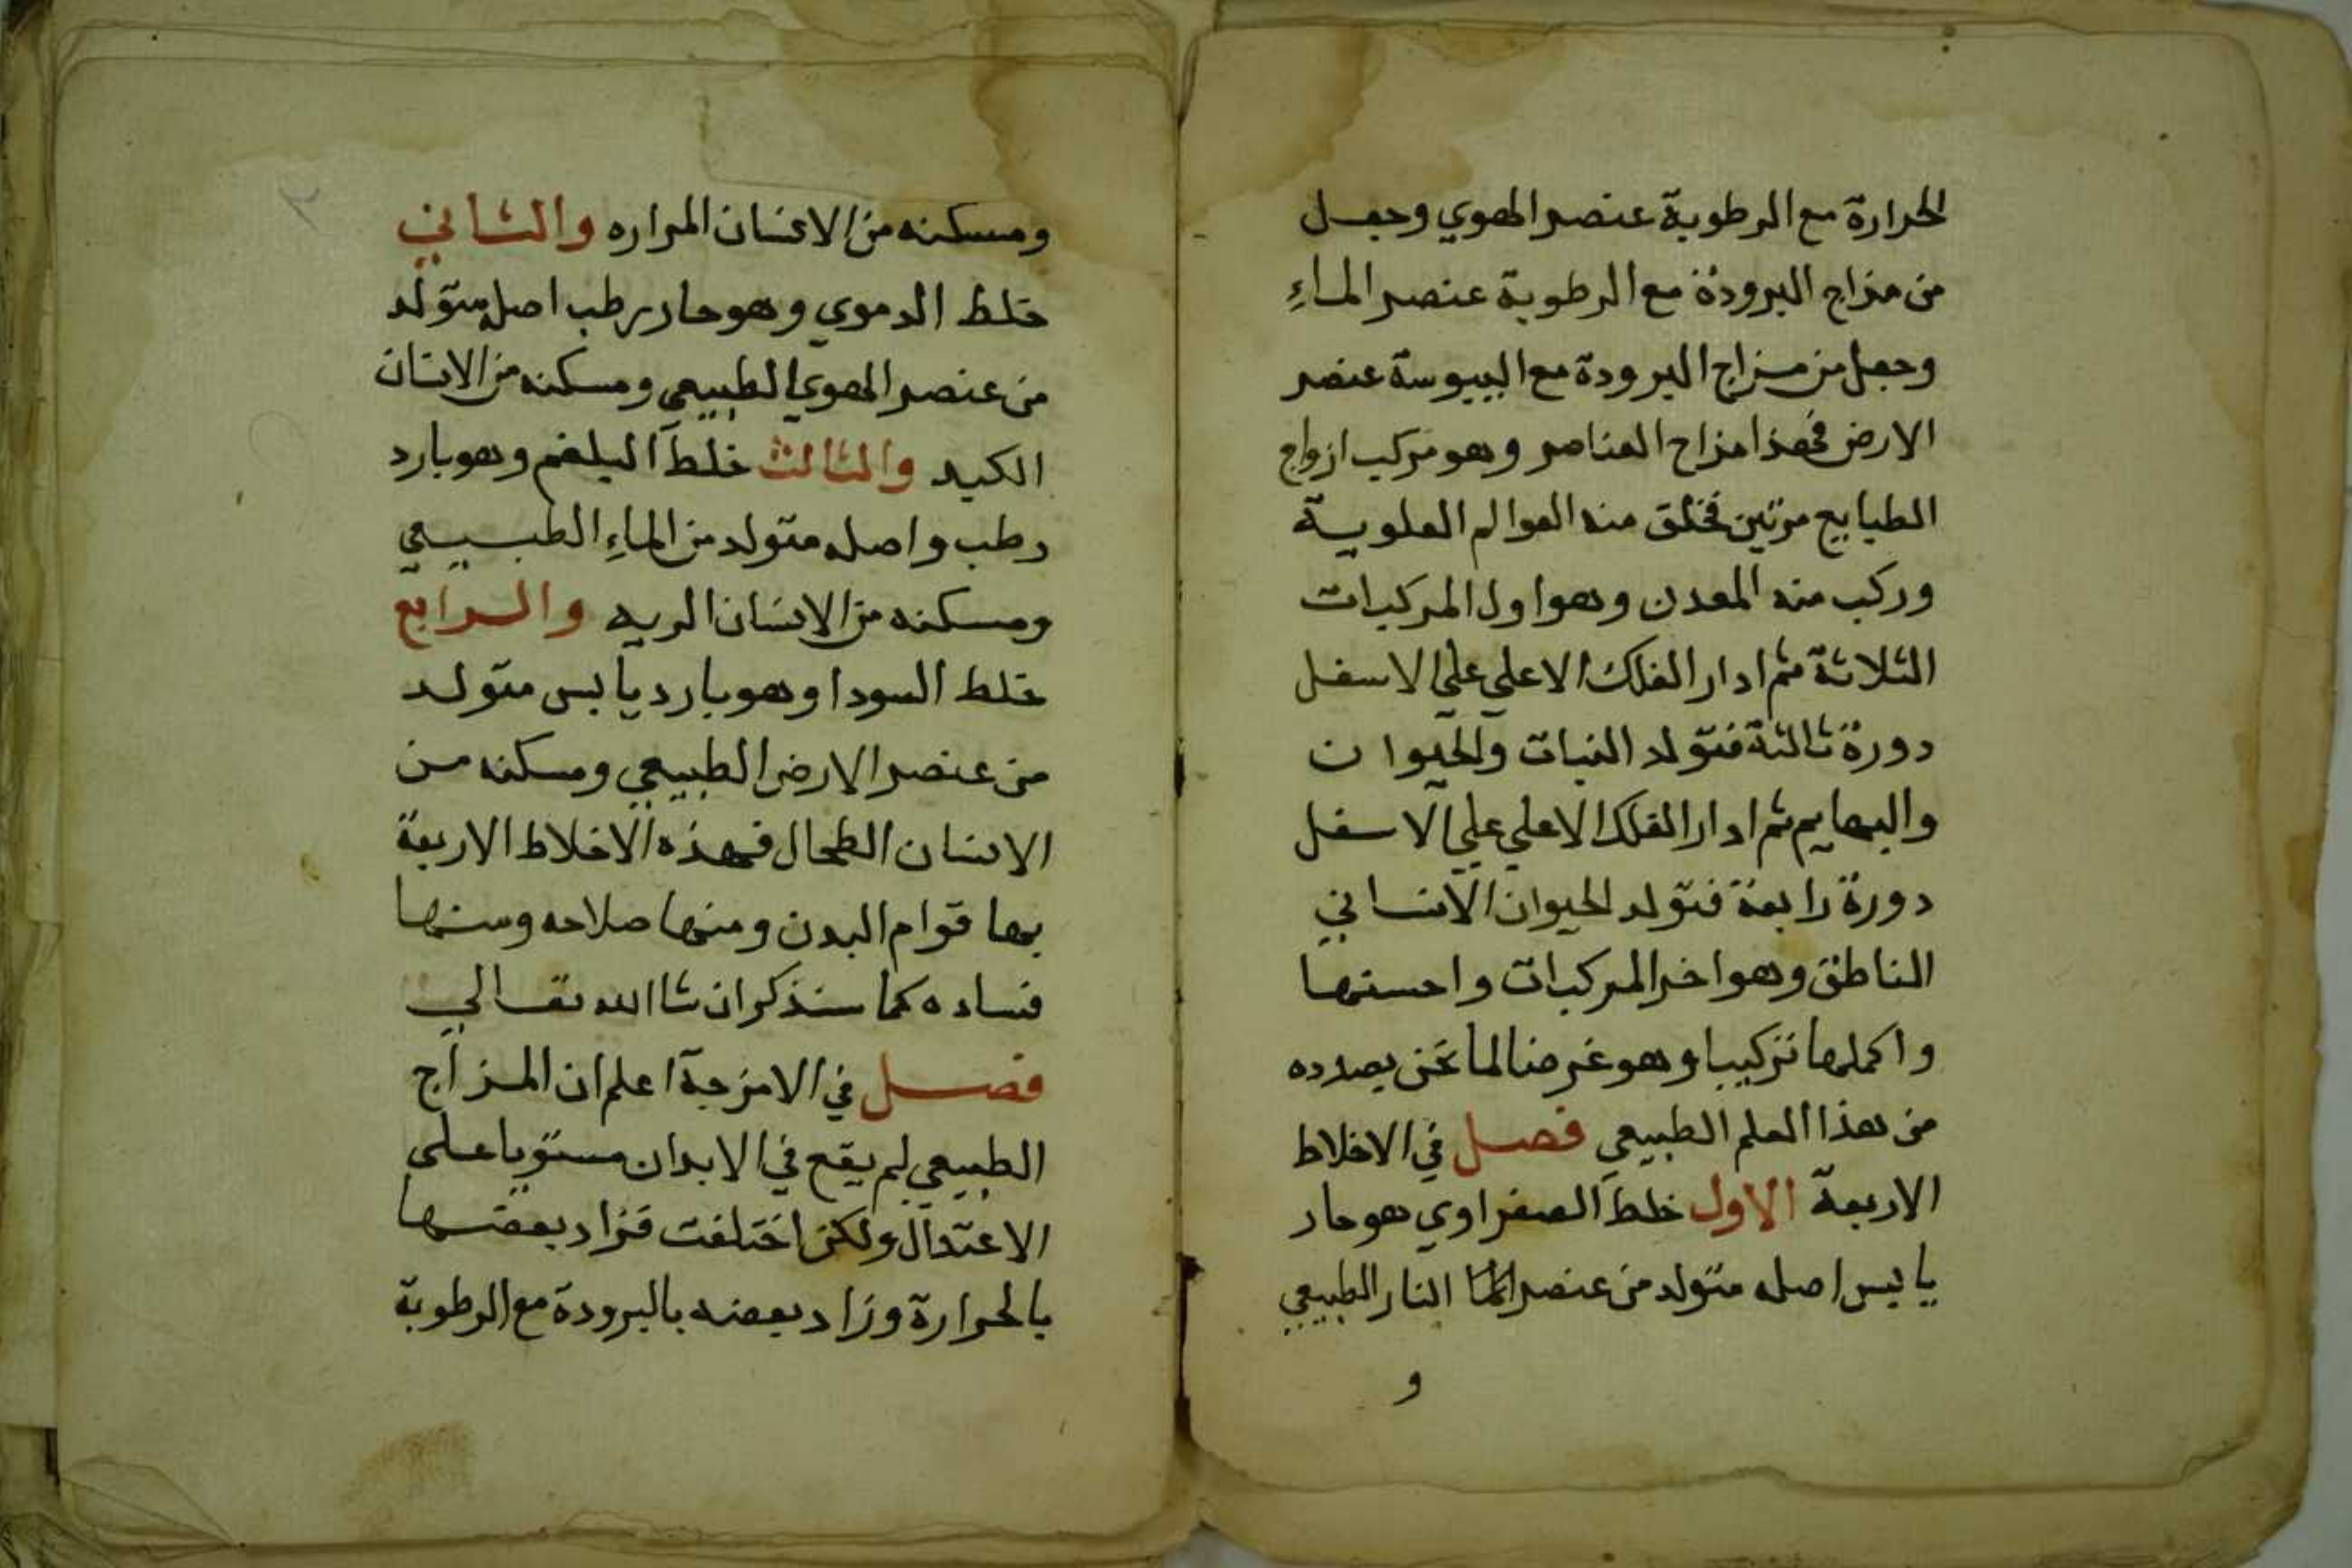 الحرارة مع الرطوبة عنصر الهوي وجعل
من مزاج البرودة مع الرطوبة عنصر الماءِ
وجعل من مزاج البرودة مع اليبوسة عنصر
الارض فهذا مزاج العناصر وهو مركب ازواج
الطبايع مرتين فخلق منه العوالم العلوية
وركب منه المعدن وهو اول المركبات
الثلاثة ثم ادار الفلك الاعلي علي الاسفل
دورة ثالثة فتولد النبات والحيوان
والبهايم ثم ادار الفلك الاعلي علي الاسفل
دورة رابعة فتولد الحيوان الانساني
الناطق وهو اخر المركبات واحسنها
واكملها تركيبا وهو غرضنا لما نحن بصدده
من هذا العلم الطبيعي فصل في الاخلاط
الاربعة الاول خلط الصفراوي هو حار
يابس اصله متولد من عنصر النار الطبيعي
و
ومسكنه من الانسان المراره والثاني
خلط الدموي وهو حار رطب اصله متولد
من عنصر الهوي الطبيعي ومسكنه من الانسان
الكبد والثالث خلط البلغم وهو بارد
رطب واصله متولد من الماءِ الطبيعي
ومسكنه من الانسان الريه والرابع
خلط السودا وهو بارد يابس متولد
من عنصر الارض الطبيعي ومسكنه من
الانسان الطحال فهذه الاخلاط الاربعة
بها قوام البدن ومنها صلاحه ومنها
فساده كما سنذكر ان شا الله تعالي
فصل في الامزجة اعلم ان المزاج
الطبيعي لم يقع في الابدان مستويا علي
الاعتدال ولكن اختلفت فزاد بعضها
بالحرارة وزاد بعضه بالبرودة مع الرطوبة